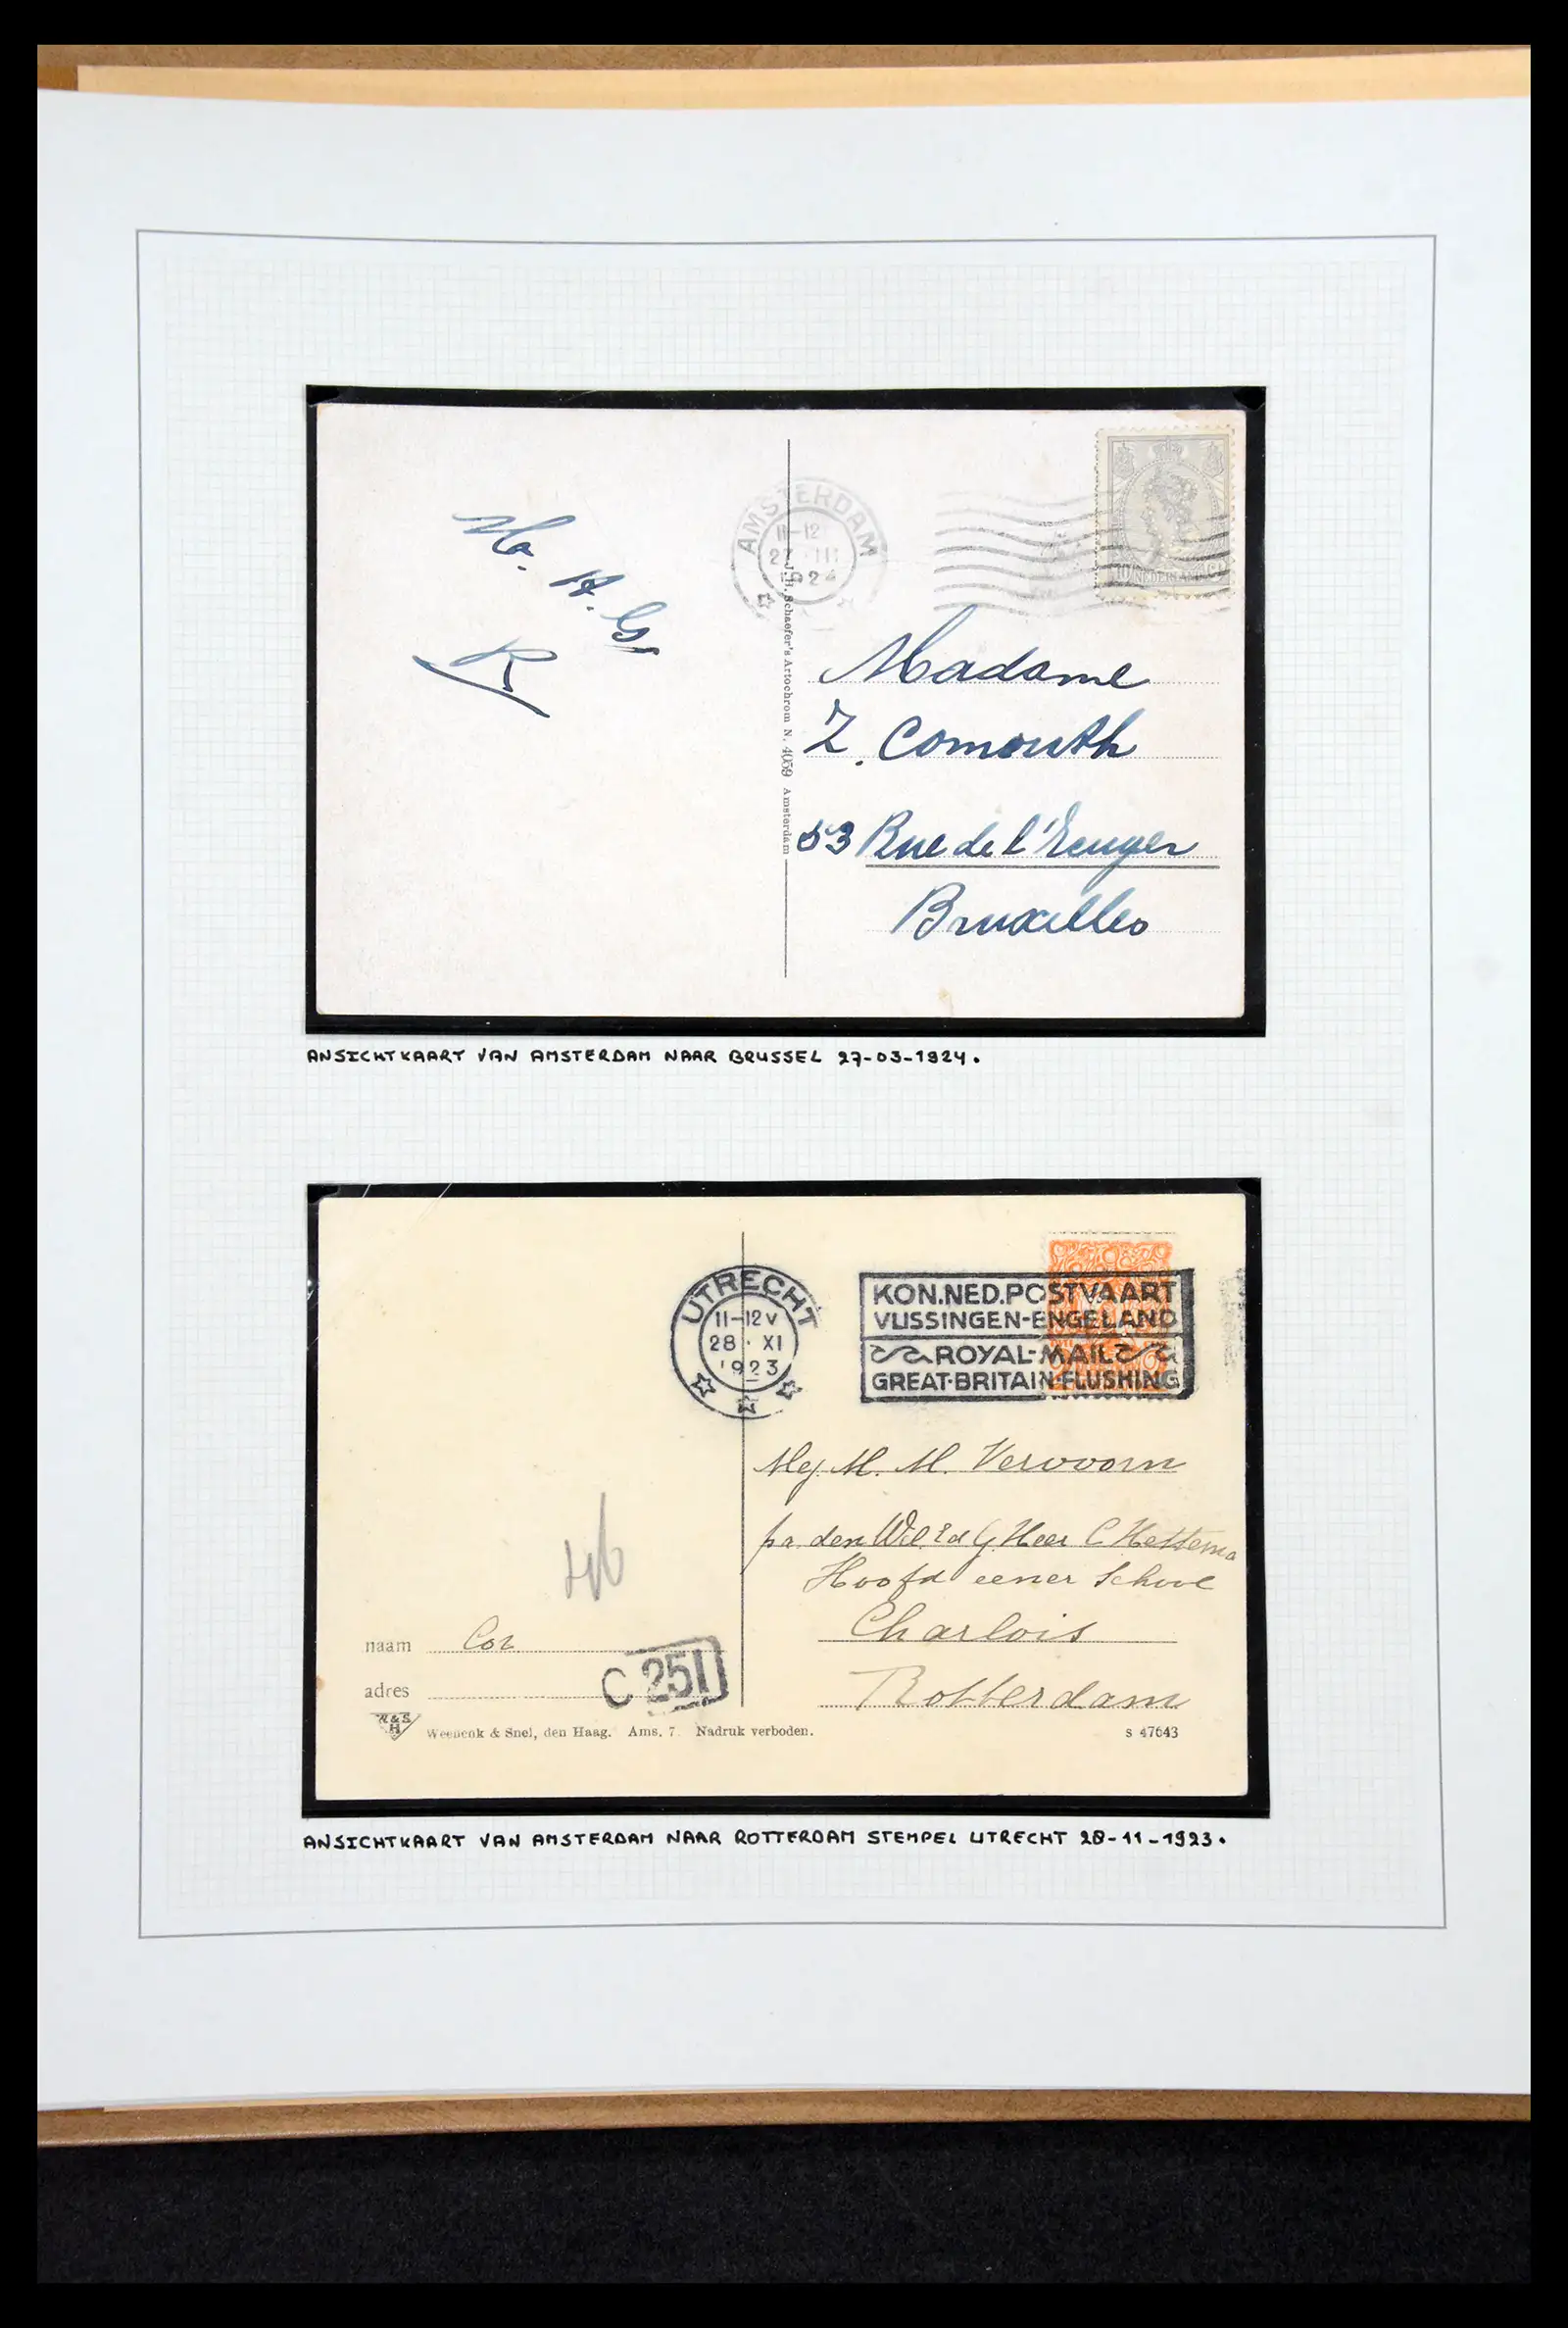 AMSTERDAM
11-12
27 · III
1924
10 NEDERLAND ct
Ma. A. G.
Madame
Z. Comouth
53 Rue de l'
Bruxelles
J.H. Schaefer's Artochrom N. 4059 Amsterdam
ANSICHTKAART VAN AMSTERDAM NAAR BRUSSEL 27-03-1924.
UTRECHT
11-12V
28 · XI
1923
KON.NED.POSTVAART
VLISSINGEN-ENGELAND
ROYAL-MAIL
GREAT-BRITAIN-FLUSHING
Mej. M. M. Vervoorn
p.a. den Wel.Ed G. Heer C Hettema
Hoofd eener School
Charlois
Rotterdam
46
naam Cor
adres
C 251
W&S
H
Weenenk & Snel, den Haag. Ams. 7 Nadruk verboden.
S 47643
ANSICHTKAART VAN AMSTERDAM NAAR ROTTERDAM STEMPEL UTRECHT 28-11-1923.